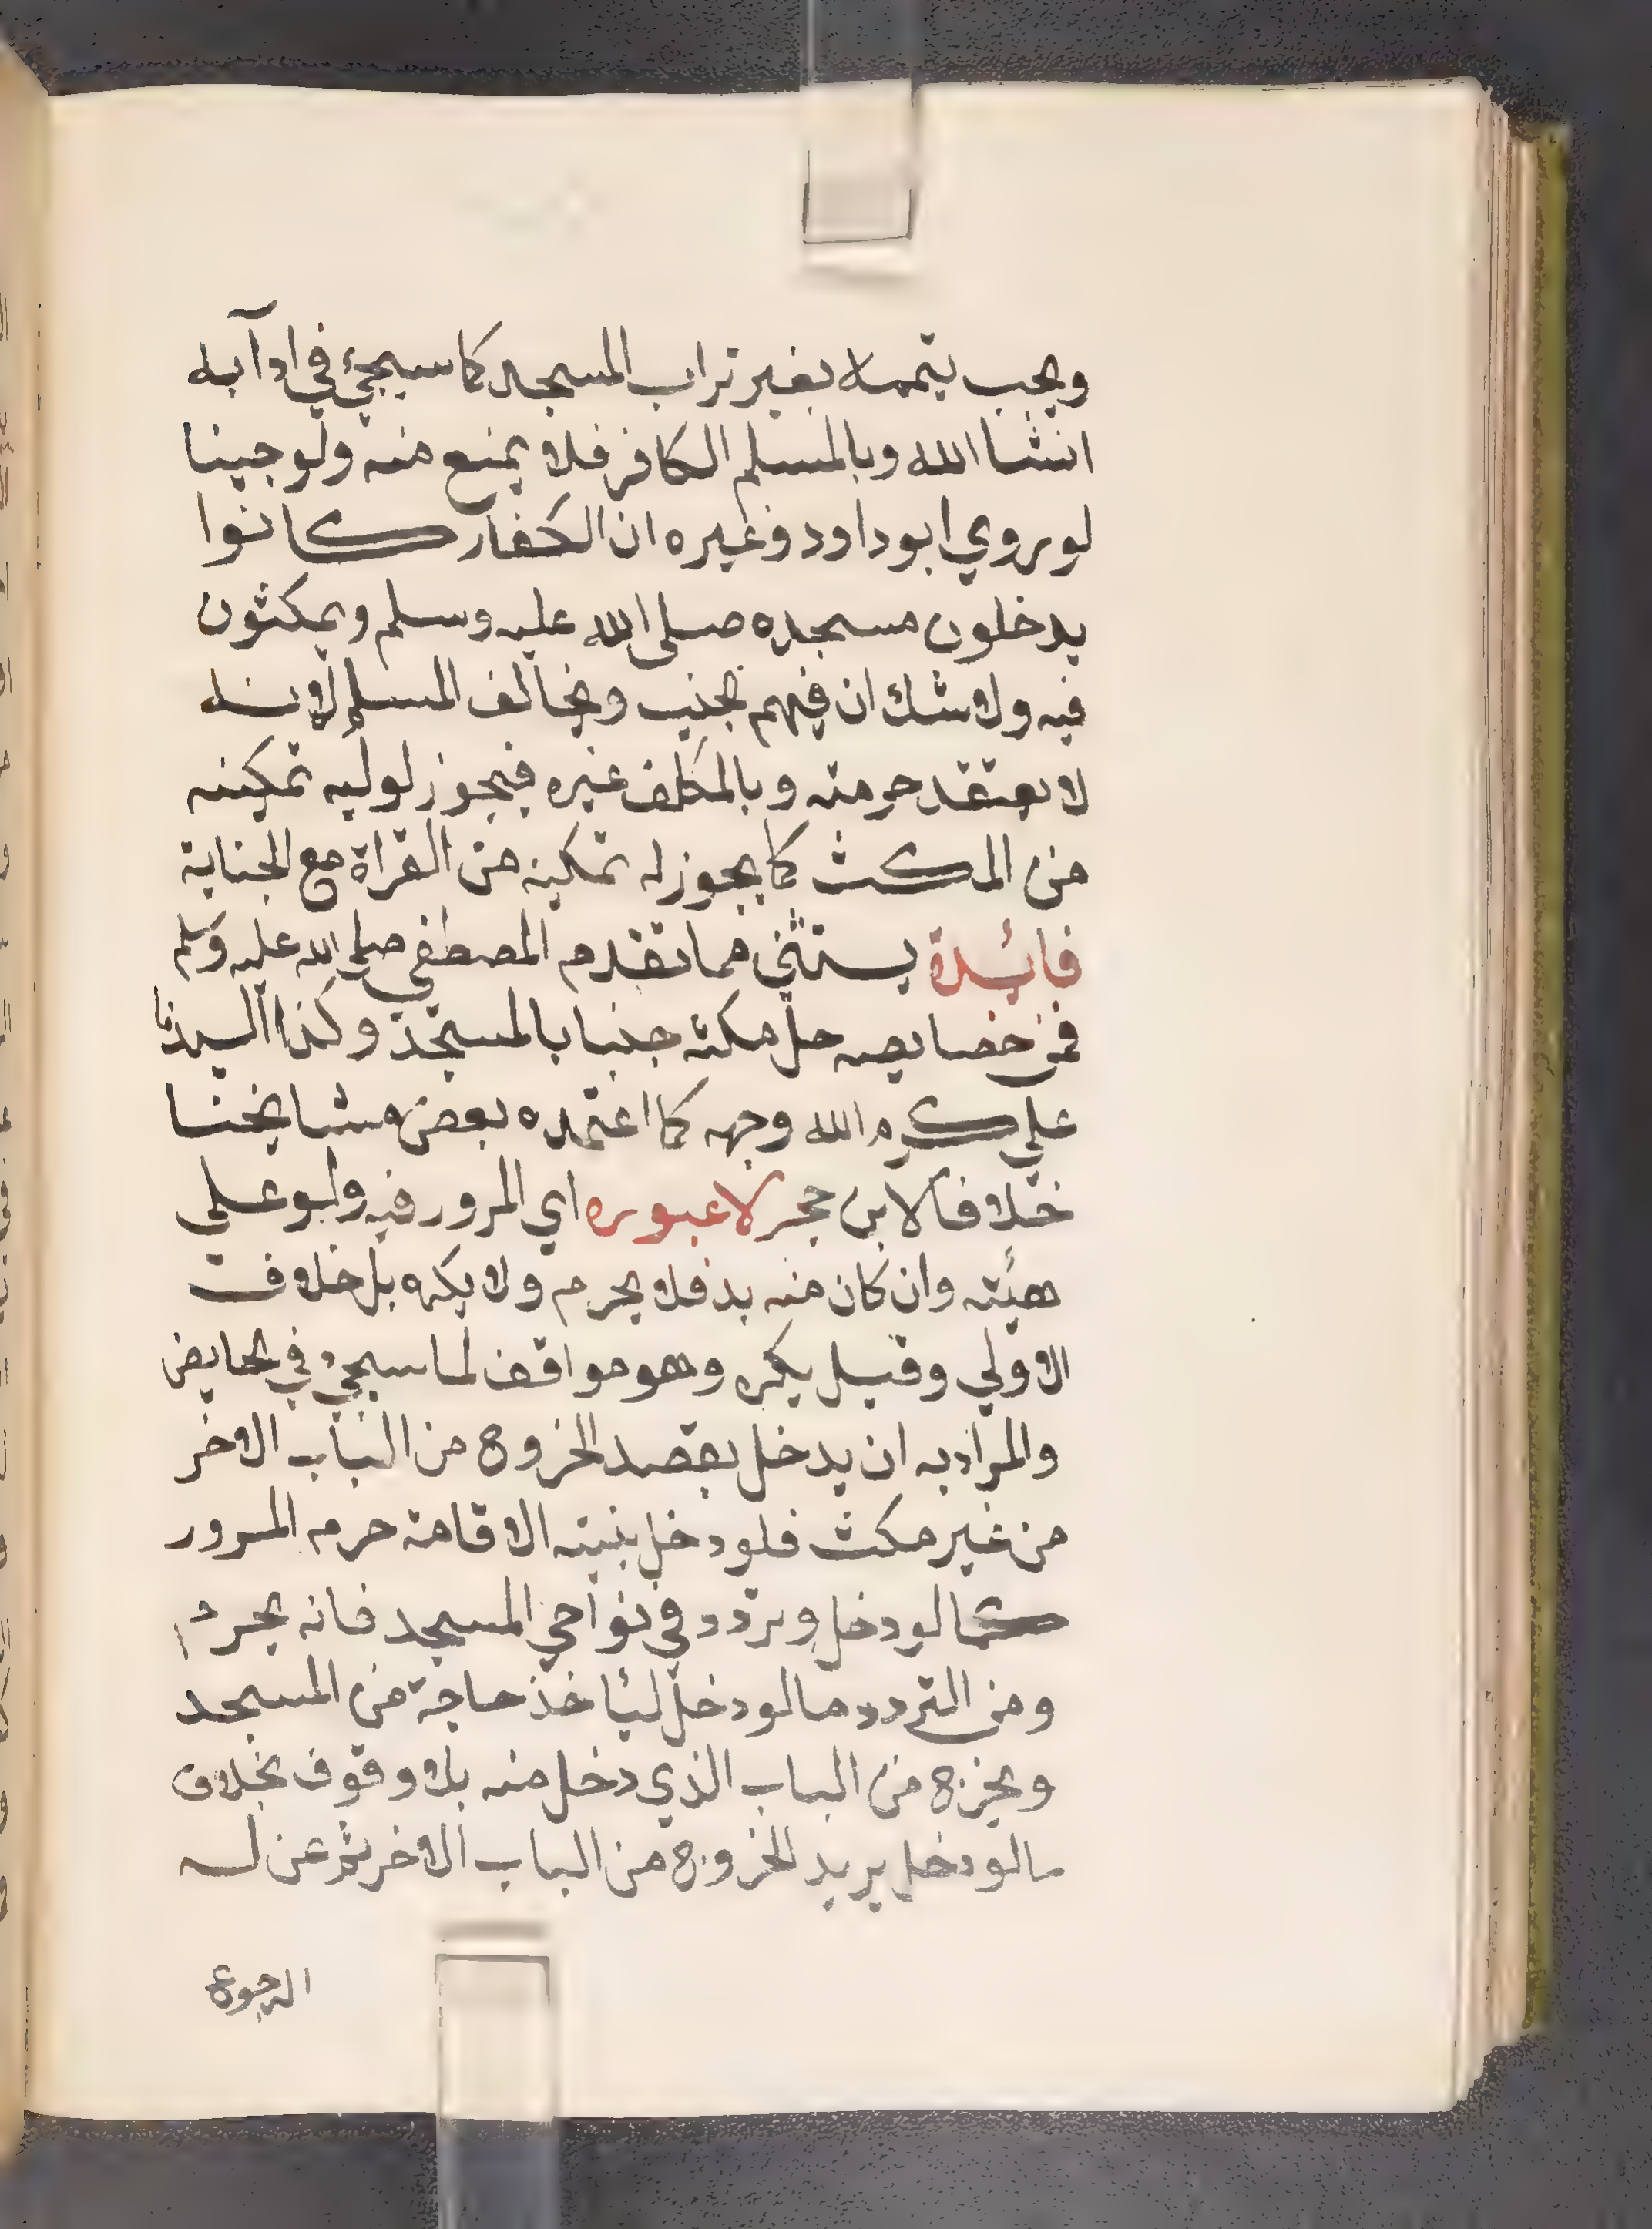 ويجب تيممه بغير تراب المسجد كما سيجيء في ادآبه
انشا الله وبالمسلم الكافر فلا يمنع منه ولو جينا
لو روي ابو داود وغيره ان الكفار كانوا
يدخلون مسجده صلى الله عليه وسلم ويمكثون
فيه ولا شك ان فيهم الجنب ويخالف المسلم لانه
لا يعتقد حرمته وبالمكلف غيره فيجوز لوليه تمكينه
من المكث كما يجوز له تمكينه من القراة مع الجنابة
فائدة يستثنى مما تقدم المصطفى صلى الله عليه وسلم
فمن خصايصه حل مكثه جنبا بالمسجد وكذا السيدنا
علي كرم الله وجهه كما اعتمده بعض مشايخنا
خلافا لابن حجر لا عبوره اي المرور فيه ولو على
هيئته وان كان منه بد فلا يحرم ولا يكره بل خلاف
الاولي وقيل يكره وهو موافق لما سيجيء في الحايض
والمراد به ان يدخل بقصد الخروج من الباب الاخر
من غير مكث فلو دخل بنيته الاقامة حرم المرور
كما لو دخل وتردد في نواحي المسجد فانه يحرم
ومن التردد ما لو دخل لياخذ حاجة من المسجد
ويخرج من الباب الذي دخل منه بلا وقوف بخلاف
ما لو دخل يريد الخروج من الباب الاخر ثم عن له
الرجوع